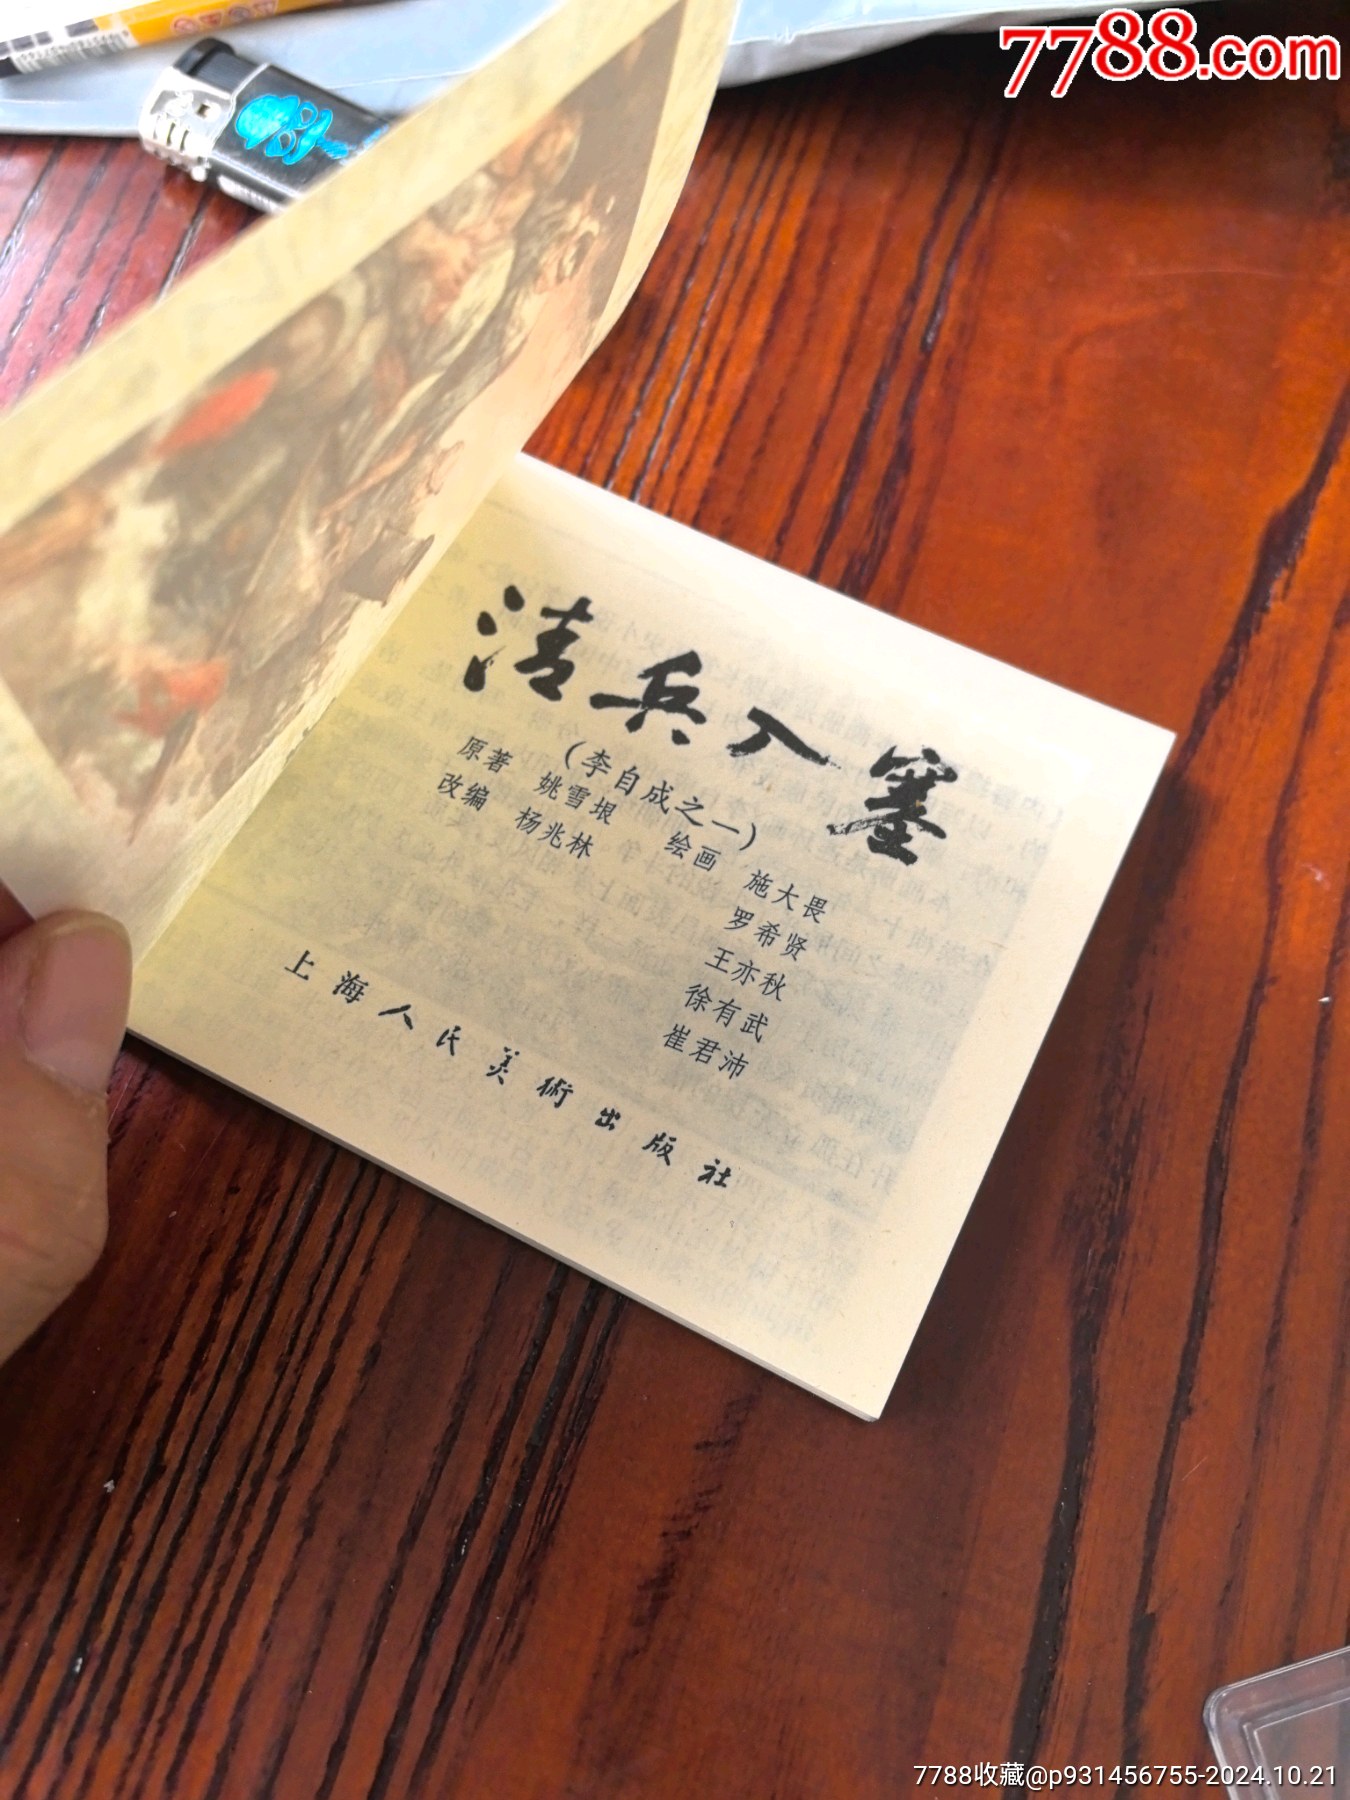 7788.com
清兵入塞
(李自成之一)
原著 姚雪垠 绘画 施大畏
改编 杨兆林 罗希贤
王亦秋
徐有武
崔君沛
上海人民美術出版社
7788收藏@p931456755-2024.10.21